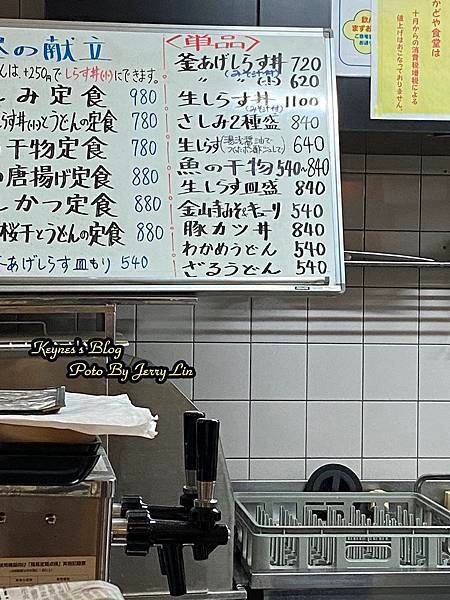 の献立
は +250円で しらす丼(小)にできます。
しみ定食 980
らす丼(小)とうどんの定食 780
干物定食 780
唐揚げ定食 880
しかつ定食 880
桜干とうどんの定食 880
あげしらす皿もり 540
<単品>
釜あげしらす丼 720
〃 (小) 620
生しらす丼 (みそ汁付) 1100
さしみ2種盛 840
生しらす 640
魚の干物 540~840
生しらす皿盛 840
金山寺みそ&キューリ 540
豚カツ丼 840
わかめうどん 540
ざるうどん 540
かどや食堂は
十月からの消費税増税による
値上げはおこなっておりません。
Keynes's Blog
Poto By Jerry Lin